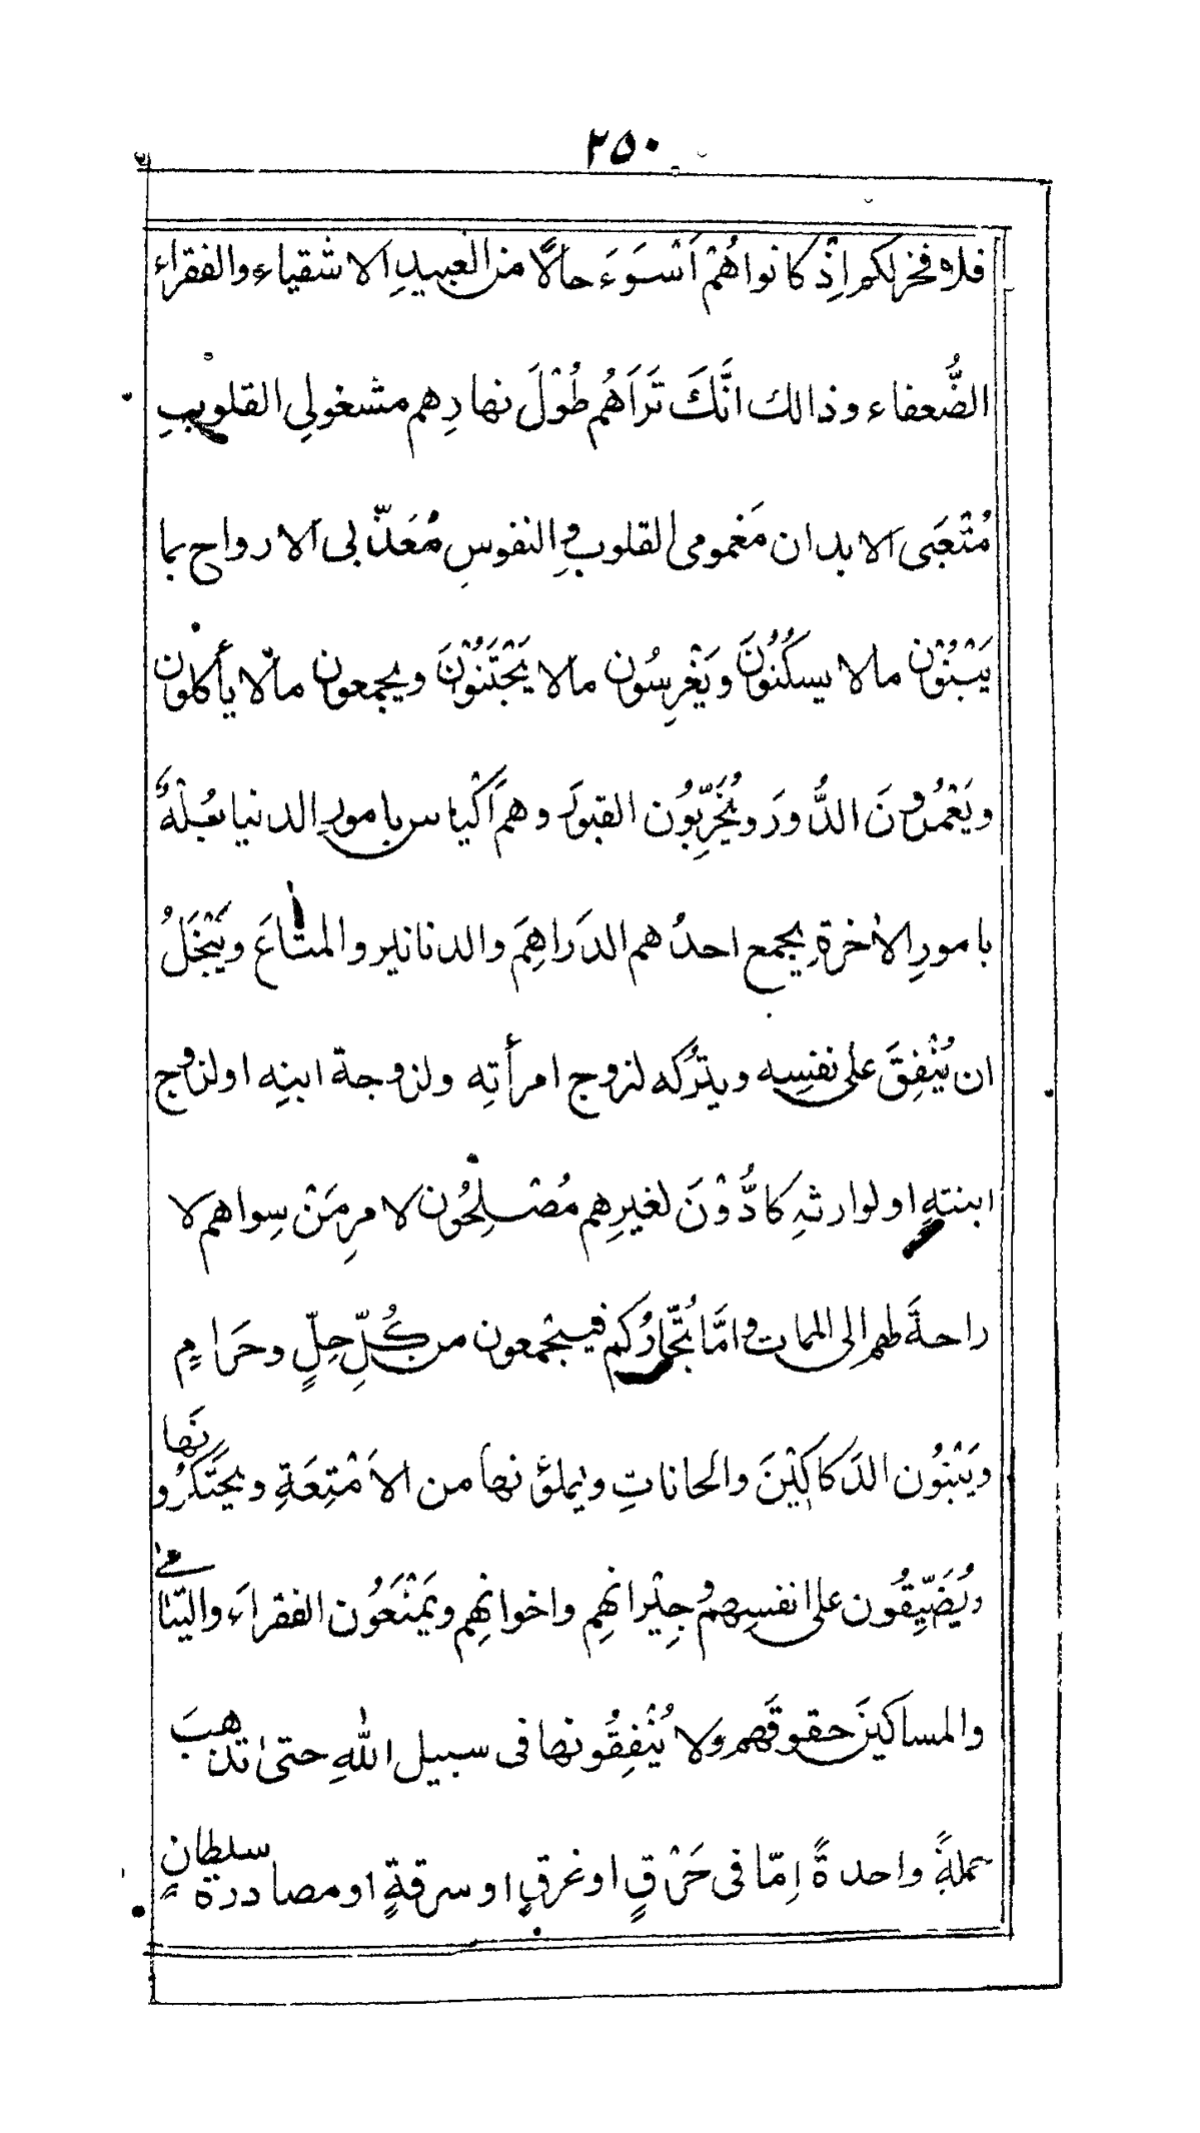 ٢٥٠
فلا فخر لكم اِذْ كانوا هُمْ اَسْوَءَ حالًا من العبيدِ الاشقياء والفقراء
الضُّعفاء وذالك انَّكَ تَرَاهُم طُوْلَ نهارِهم مشغولي القلوبِ
مُتْعَبَى الابدان مَغمومى القلوب والنفوسِ مُعَذّبى الارواح بما
يَبْنُوْن مالا يسكُنُوْنَ ويَغْرِسُون مالا يَجْتَنُوْنَ ويجمعون مالا يأكلون
ويَعْمُرُوْنَ الدُّورَ ويُخَرِّبُون القبورَ وهم اَكْياس بامورِ الدنيا بُلْهٌ
بامورِ الاٰخرةِ يجمع احدُهم الدَراهِمَ والدنانير والمتاعَ ويَبْخَلُ
ان يُنْفِقَ على نفسِه ويتركُه لزوج امرأتِه ولزوجة ابنِه اولزوج
ابنتهِ اولوارثهِ كادُّوْنَ لغيرِهم مُصْلِحُون لامرِ مَنْ سِواهم لا
راحةَ لهم الى الممات وامَّا تُجّارُكم فيجْمعون من كُلِّ حِلٍّ وحَرَامٍ
ويَبْنُون الدَكاكِيْنَ والحاناتِ ويملؤنها من الاَمْتِعَةِ ويحتَكرُونَها
ويُضَيِّقُون على انفسِهم وجِيْرانِهِم واخوانِهِم ويَمْنَعُون الفقراءَ واليتامٰى
والمساكينَ حقوقَهم ولا يُنْفِقُونها فى سبيل اللهِ حتىٰ تذهبَ
جملةً واحدةً اِمّا فى حَرْقٍ اوغرقٍ او سرقةٍ او مصادرة سلطانٍ